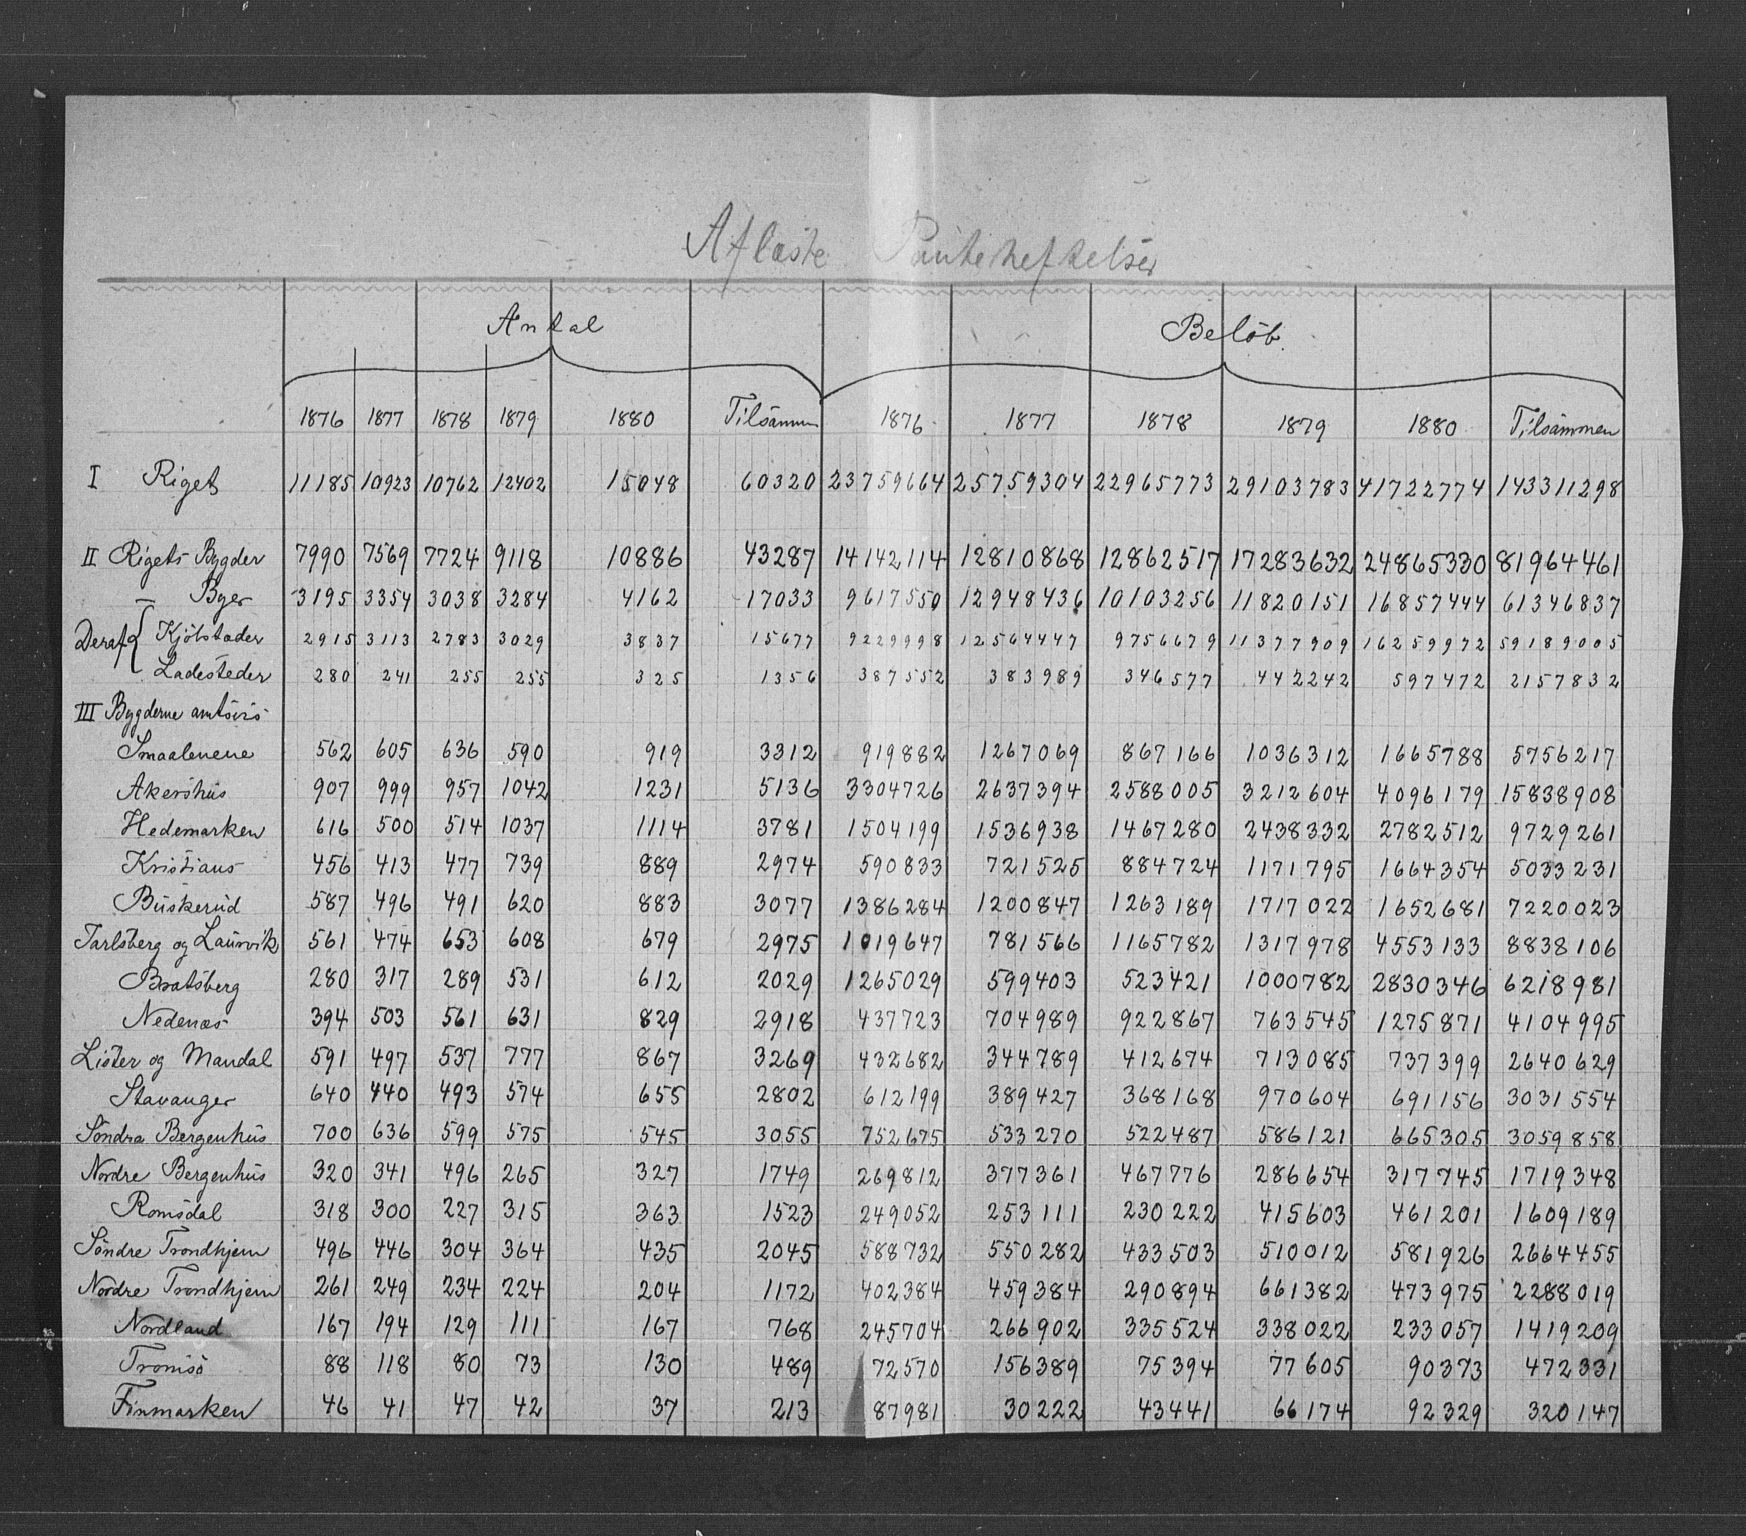 Aflæste Panteheftelser
Antal Beløb.
1876 1877 1878 1879 1880 Tilsammen 1876 1877 1878 1879 1880 Tilsammen
I Riget 11185 10923 10762 12402 15048 60320 23759664 25759304 22965773 29103783 41722774 143311298
II Rigets Bygder 7990 7569 7724 9118 10886 43287 14142114 12810868 12862517 17283632 24865330 81964461
— Byer 3195 3354 3038 3284 4162 17033 9617550 12948436 10103256 11820151 16857444 61346837
Deraf Kjöbstæder 2915 3113 2783 3029 3837 15677 9229998 12564447 9756679 11377909 16259972 59189005
Ladesteder 280 241 255 255 325 1356 387552 383989 346577 442242 597472 2157832
III Bygderne amtsvis
Smaalenene 562 605 636 590 919 3312 919882 1267069 867166 1036312 1665788 5756217
Akershus 907 999 957 1042 1231 5136 3304726 2637394 2588005 3212604 4096179 15838908
Hedemarken 616 500 514 1037 1114 3781 1504199 1536938 1467280 2438332 2782512 9729261
Kristians 456 413 477 739 889 2974 590833 721525 884724 1171795 1664354 5033231
Buskerud 587 496 491 620 883 3077 1386284 1200847 1263189 1717022 1652681 7220023
Jarlsberg og Laurvik 561 474 653 608 679 2975 1019647 781566 1165782 1317978 4553133 8838106
Bratsberg 280 317 289 531 612 2029 1265029 599403 523421 1000782 2830346 6218981
Nedenæs 394 503 561 631 829 2918 437723 704989 922867 763545 1275871 4104995
Lister og Mandal 591 497 537 777 867 3269 432682 344789 412674 713085 737399 2640629
Stavanger 640 440 493 574 655 2802 612199 389427 368168 970604 691156 3031554
Söndre Bergenhus 700 636 599 575 545 3055 752675 533270 522487 586121 665305 3059858
Nordre Bergenhus 320 341 496 265 327 1749 269812 377361 467776 286654 317745 1719348
Romsdal 318 300 227 315 363 1523 249052 253111 230222 415603 461201 1609189
Söndre Trondhjem 496 446 304 364 435 2045 588732 550282 433503 510012 581926 2664455
Nordre Trondhjem 261 249 234 224 204 1172 402384 459384 290894 661382 473975 2288019
Nordland 167 194 129 111 167 768 245704 266902 335524 338022 233057 1419209
Tromsö 88 118 80 73 130 489 72570 156389 75394 77605 90373 472331
Finmarken 46 41 47 42 37 213 87981 30222 43441 66174 92329 320147